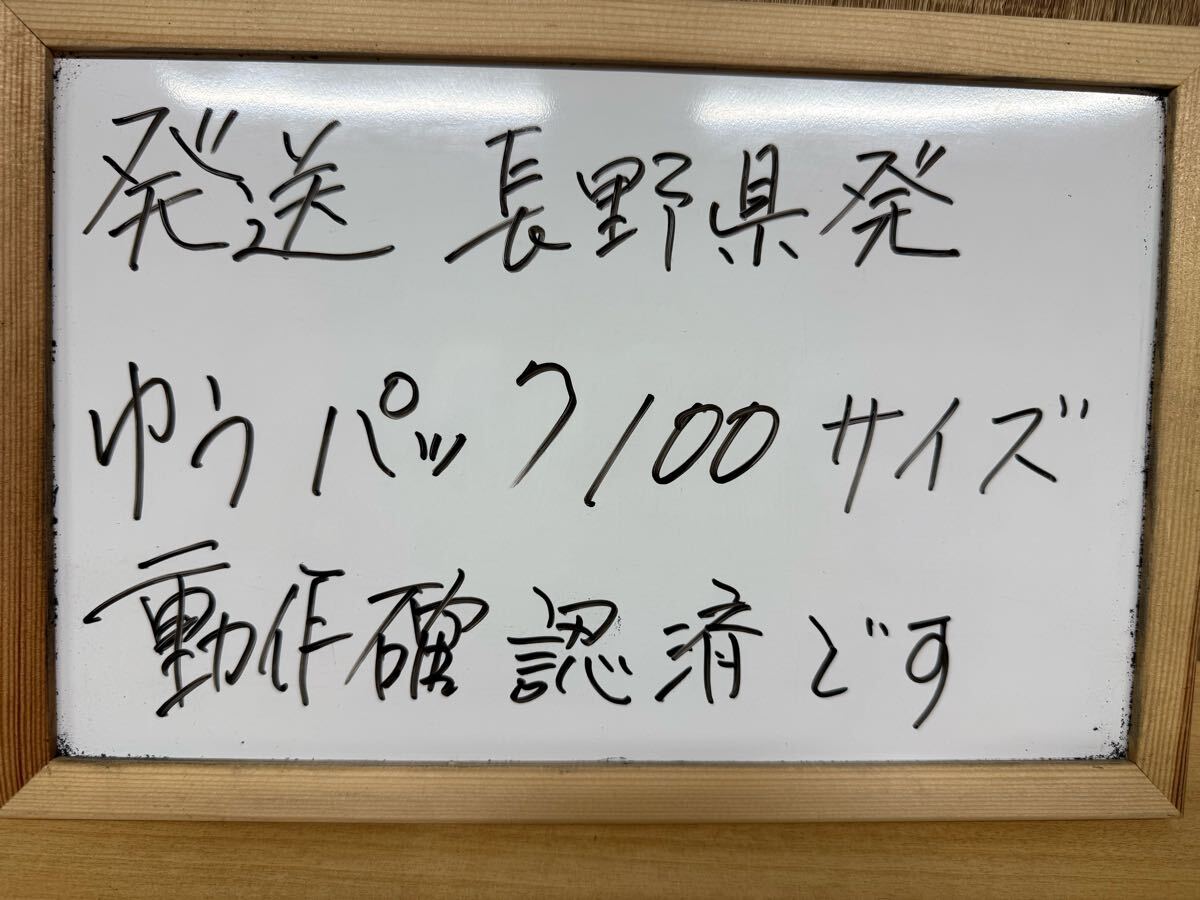 発送 長野県発
ゆうパック100サイズ
動作確認済です